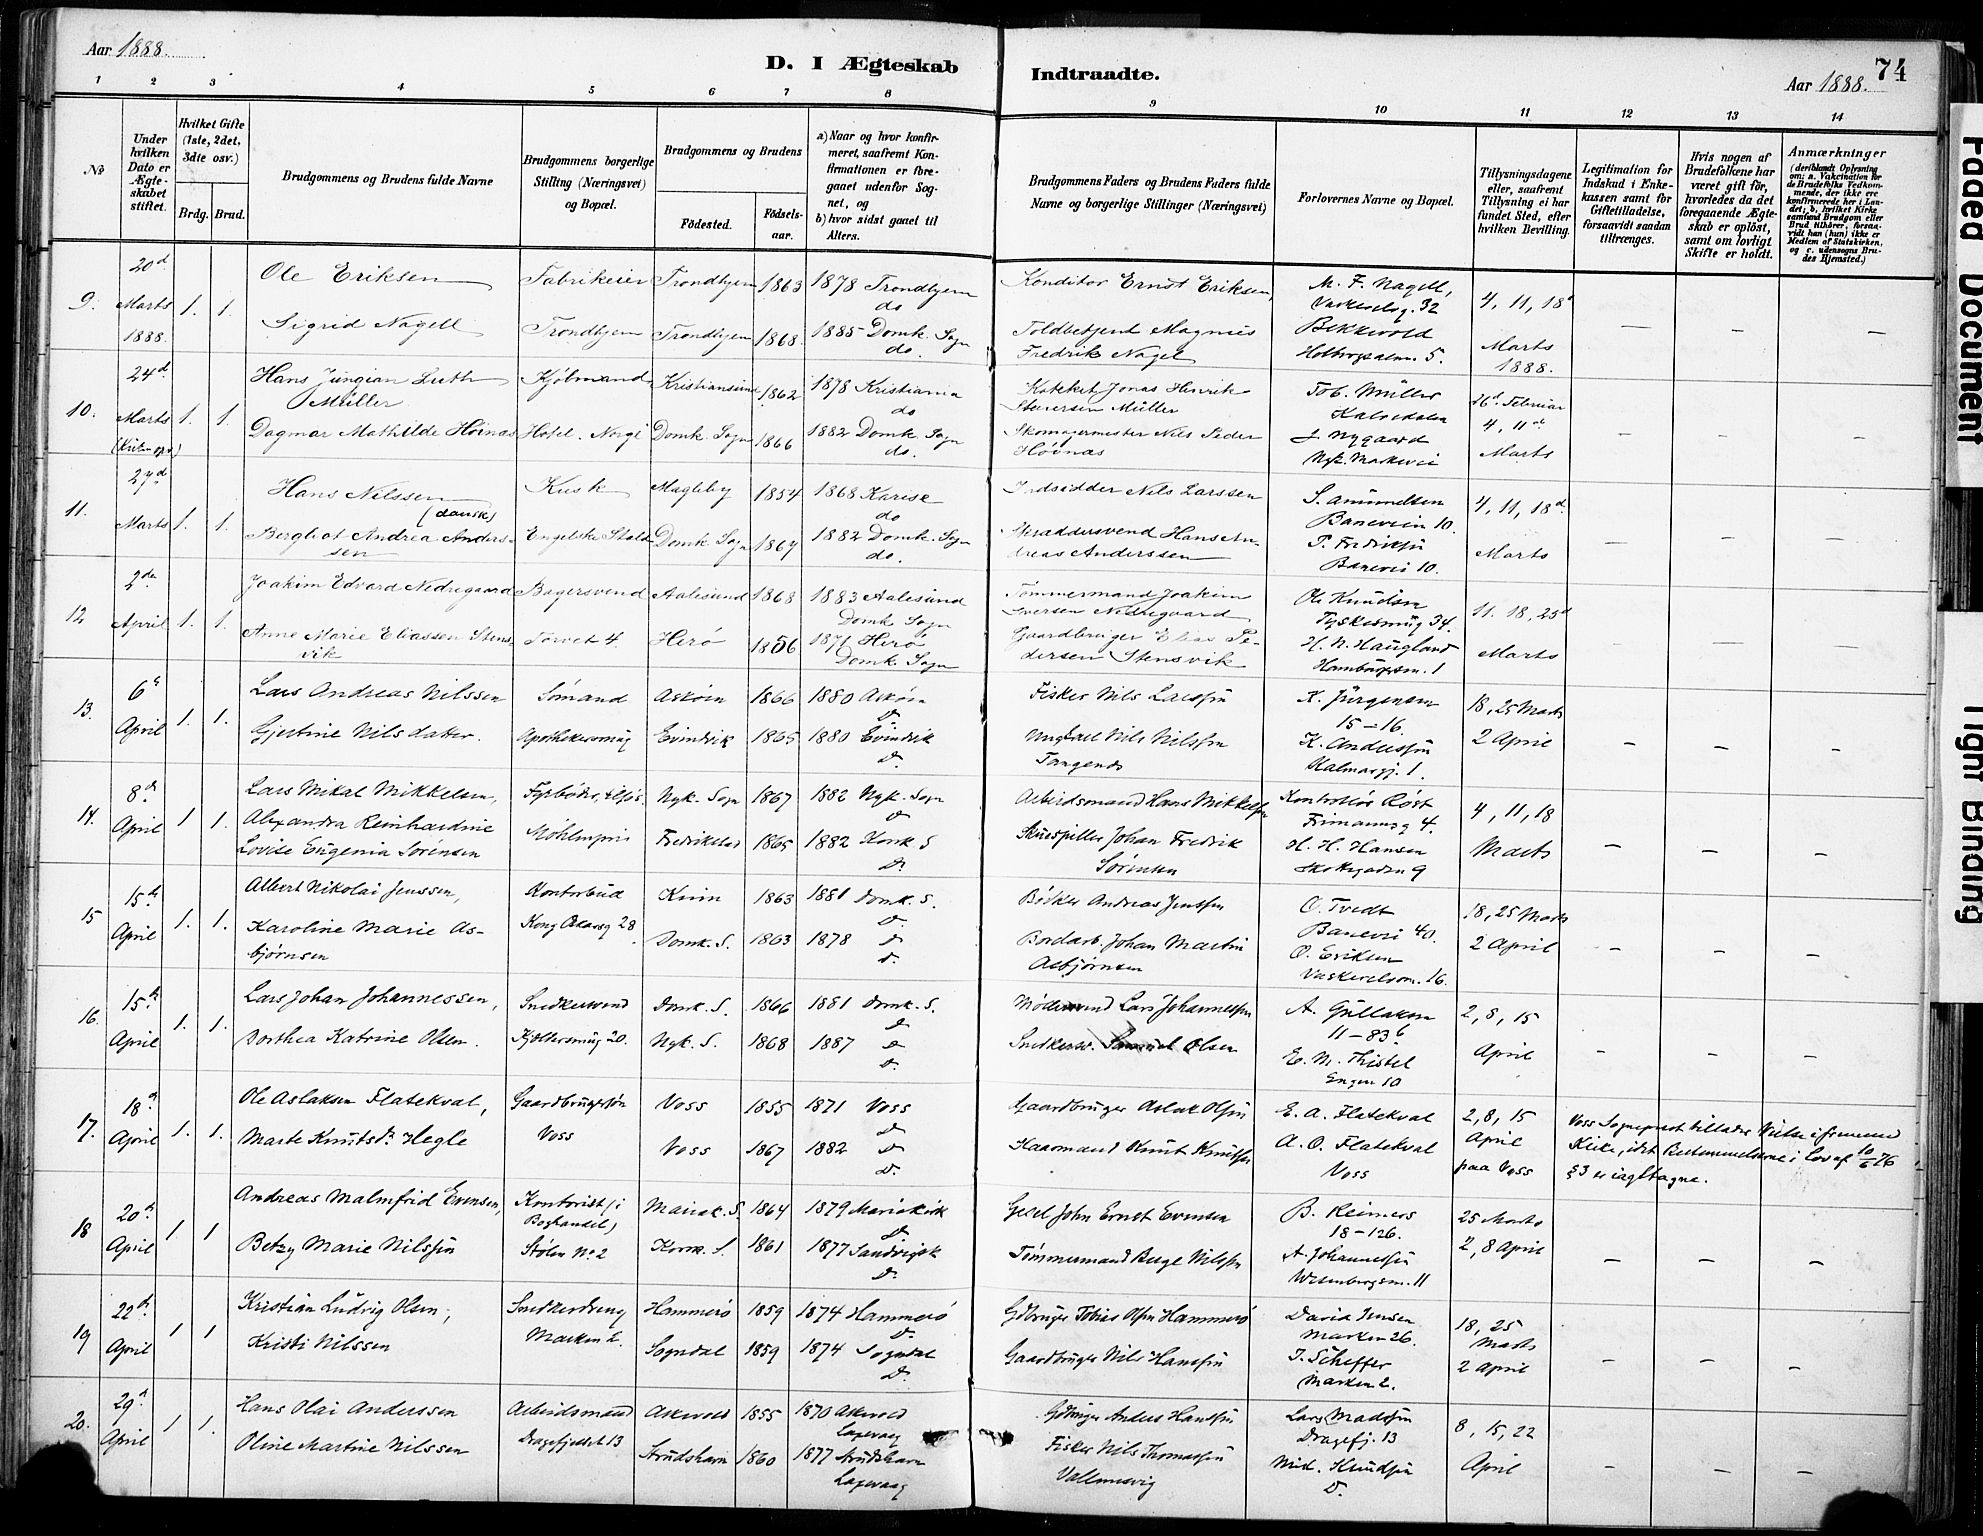 Aar 1888.
D. I Ægteskab
Indtraadte.
Aar 1888.
74
1 2 3 4 5 6 7 8 9 10 11 12 13 14
No
Under hvilken Dato er Ægteskabet stiftet.
Hvilket Gifte (1ste, 2det, 3die osv.)
Brdg. Brud.
Brudgommens og Brudens fulde Navne
Brudgommens borgerlige Stilling (Næringsvei) og Bopæl.
Brudgommens og Brudens
Fødested.
Fødselsaar.
a) Naar og hvor konfirmeret, saafremt Konfirmationen er foregaaet udenfor Sognet, og
b) hvor sidst gaaet til Alters.
Brudgommens Faders og Brudens Faders fulde Navne og borgerlige Stillinger (Næringsvei)
Forlovernes Navne og Bopæl.
Tillysningsdagene eller, saafremt Tillysning ei har fundet Sted, efter hvilken Bevilling.
Legitimation for Indskud i Enkekassen samt for Giftetilladelse, forsaavidt saadan tiltrænges.
Hvis nogen af Brudefolkene har været gift før, hvorledes da det foregaaende Ægteskab er opløst, samt om lovligt Skifte er holdt.
Anmærkninger
(deriblandt Oplysning om: a. Vakcination for de Brudefolks Vedkommende, der ikke ere konfirmerede her i Landet; b. hvilket Kirkesamfund Brudgom eller Brud tilhører, forsaavidt han (hun) ikke er Medlem af Statskirken, og c. udensogns Brudes Hjemsted.)
9. 20d Marts 1888. 1. 1.
Ole Eriksen Fabrikeier Trondhjem 1863 1878 Trondhjem do Konditor Ernst Eriksen, M. F. Nagell, 32 4, 11, 18d
Sigrid Nagell Trondhjem Trondhjem 1868. 1885 Domk. Sogn do. Toldbetjent Magnus Fredrik Nagel Bekkevold 5. Marts 1888.
10. 24d Marts 1. 1.
Hans Jungian Luth Müller Kjøbmand Kristiansund 1862 1878 Kristiania do Kateket Jonas Henrik Müller Tob. Müller Kalvedalen 26d Februar 4, 11te
Dagmar Mathilde Høinas Hotel Norge Domk. Sogn 1866 1882 Domk. Sogn do. Skomagermester Nils Peder Høvnas J. Nygaard Nyk. Markevei Marts
11. 27d Marts 1. 1.
Hans Nilssen (dansk) Kusk Magleby 1854 1868 Karise do Indsidder Nils Larssen S. Amundsen Baneveien 10. 4, 11, 18d
Bergliot Andrea Anderssen Engelske Stald Domk. Sogn 1867 1882 Domk. Sogn do. Skræddersvend Hans Andreas Anderssen P. Fredriksen Banevei 10. Marts
12 2den April 1. 1.
Joakim Edvard Nedregaard Bagersvend Aalesund 1868 1883 Aalesund Domk. Sogn Tømmermand Joakim Iversen Nedregaard Ole Knudsen Tyskesmug 34. 11. 18, 25d
Anne Marie Eliassen Stensvik Torvet 4. Herø 1856 1871 Herø Domk. Sogn Gaardbruger Elias Pedersen Stensvik H. N. Haugland Hamburgsm. 1 Marts
13. 6te April 1. 1.
Lars Andreas Nilssen Sømand Askøen 1866 1880 Askøen D. Fisker Nils Larssen K. Jürgensen 15 – 16. 18, 25 Marts
Gjertine Nilsdatter. Apothekersmug Evindvik 1865 1880 Evindvik D. Ungkarl Nils Nilssen Tangenes K. Anderssen Kalmargj. 1. 2 April
14. 8de April 1 1.
Lars Mikal Mikkelsen, Fyrbøder, Nyk. Sogn 1867 1882 Nyk. Sogn D Arbeidsmand Hans Mikkelsen Kontrollør Røst 4. 4, 11, 18
Alexandra Reinhardine Lovise Eugenia Sørensen Møhlenpris Fredrikstad 1865 1882 Kork. S D. Skuespiller Johan Fredrik Sørensen H. H. Hansen Skottegaden 9 Marts
15 15de April 1. 1.
Albert Nikolai Jenssen, Kontorbud Kinn 1863 1881 Domk. S. D. Bødker Andreas Jenssen O. Tvedt Banevei 40. 18, 25 Marts
Karoline Marie Asbjørnsen Kong Oscarsg 28 Domk. S. 1863 1878 D D. Bordarb. Johan Martin Asbjørnsen O. Eriksen Vaskerelvsm. 16. 2 April
16. 15de April 1. 1.
Lars Johan Johannessen, Snedkersvend Domk. S. 1866 1881 Domk. S. D Lars Johannessen A. Gullaksen 11 – 83 b 2, 8, 15
Dorthea Katrine Olsen. 20. Nyk. S. 1868 1887 D D. Snedkersv. Samuel Olsen E. M. Thistel Engen 10 April
17. 18de April 1. 1.
Ole Aslaksen Flatekval, Gaardbrugersøn Voss 1855 1871 Voss D Gaardbruger Aslak Olsen E. A. Flatekval 2, 8, 15 April
Marte Knutsdr Hegle Voss Voss 1867 1882 D D. Kaarmand Knut Knutsen A. O. Flatekval Voss paa Voss
Voss Sogneprest tillader Vielse i fremmed Kirke, idet Bestemmelserne i Lov af 10/6 76 § 3 er iagttagne.
18 20de April 1 1
Andreas Malmfrid Evensen, Kontorist (i Boghandel) Mariak. S. 1864 1879 Mariakirk D. Gesel John Ernst Evensen B. Reimers 18 – 126. 25 Marts
Betzy Marie Nilssen Stølen No 2 Kork. S. 1861 1877 Sandvigsk D. Tømmermand Berge Nilssen A. Johannessen 11 2, 8 April
19 22de April 1 1
Kristian Ludvig Olsen, Snedkerdreng Hammerø 1859 1874 Hammerø D. Gdbruger Tobias Olsen Hammerø David Jensen Marken 26. 18, 25 Marts
Kristi Nilssen Marken 2. Sogndal 1859 1874 Sogndal D. Gaardbruger Nils Hanssen J. Scheffer Marken 2. 2 April
20. 29de April 1 1.
Hans Olai Anderssen Arbeidsmand Askvold 1855 1870 Askvold Laxevaag Gdbruger Anders Hanssen Lars Madssen Dragefj. 13 8, 15, 22
Oline Martine Nilssen Dragefjeldet 13 Strudshavn 1860 1877 Strudshavn Laxevaag Fisker Nils Thomassen Knudsen D. April
Faded Document
Tight Binding